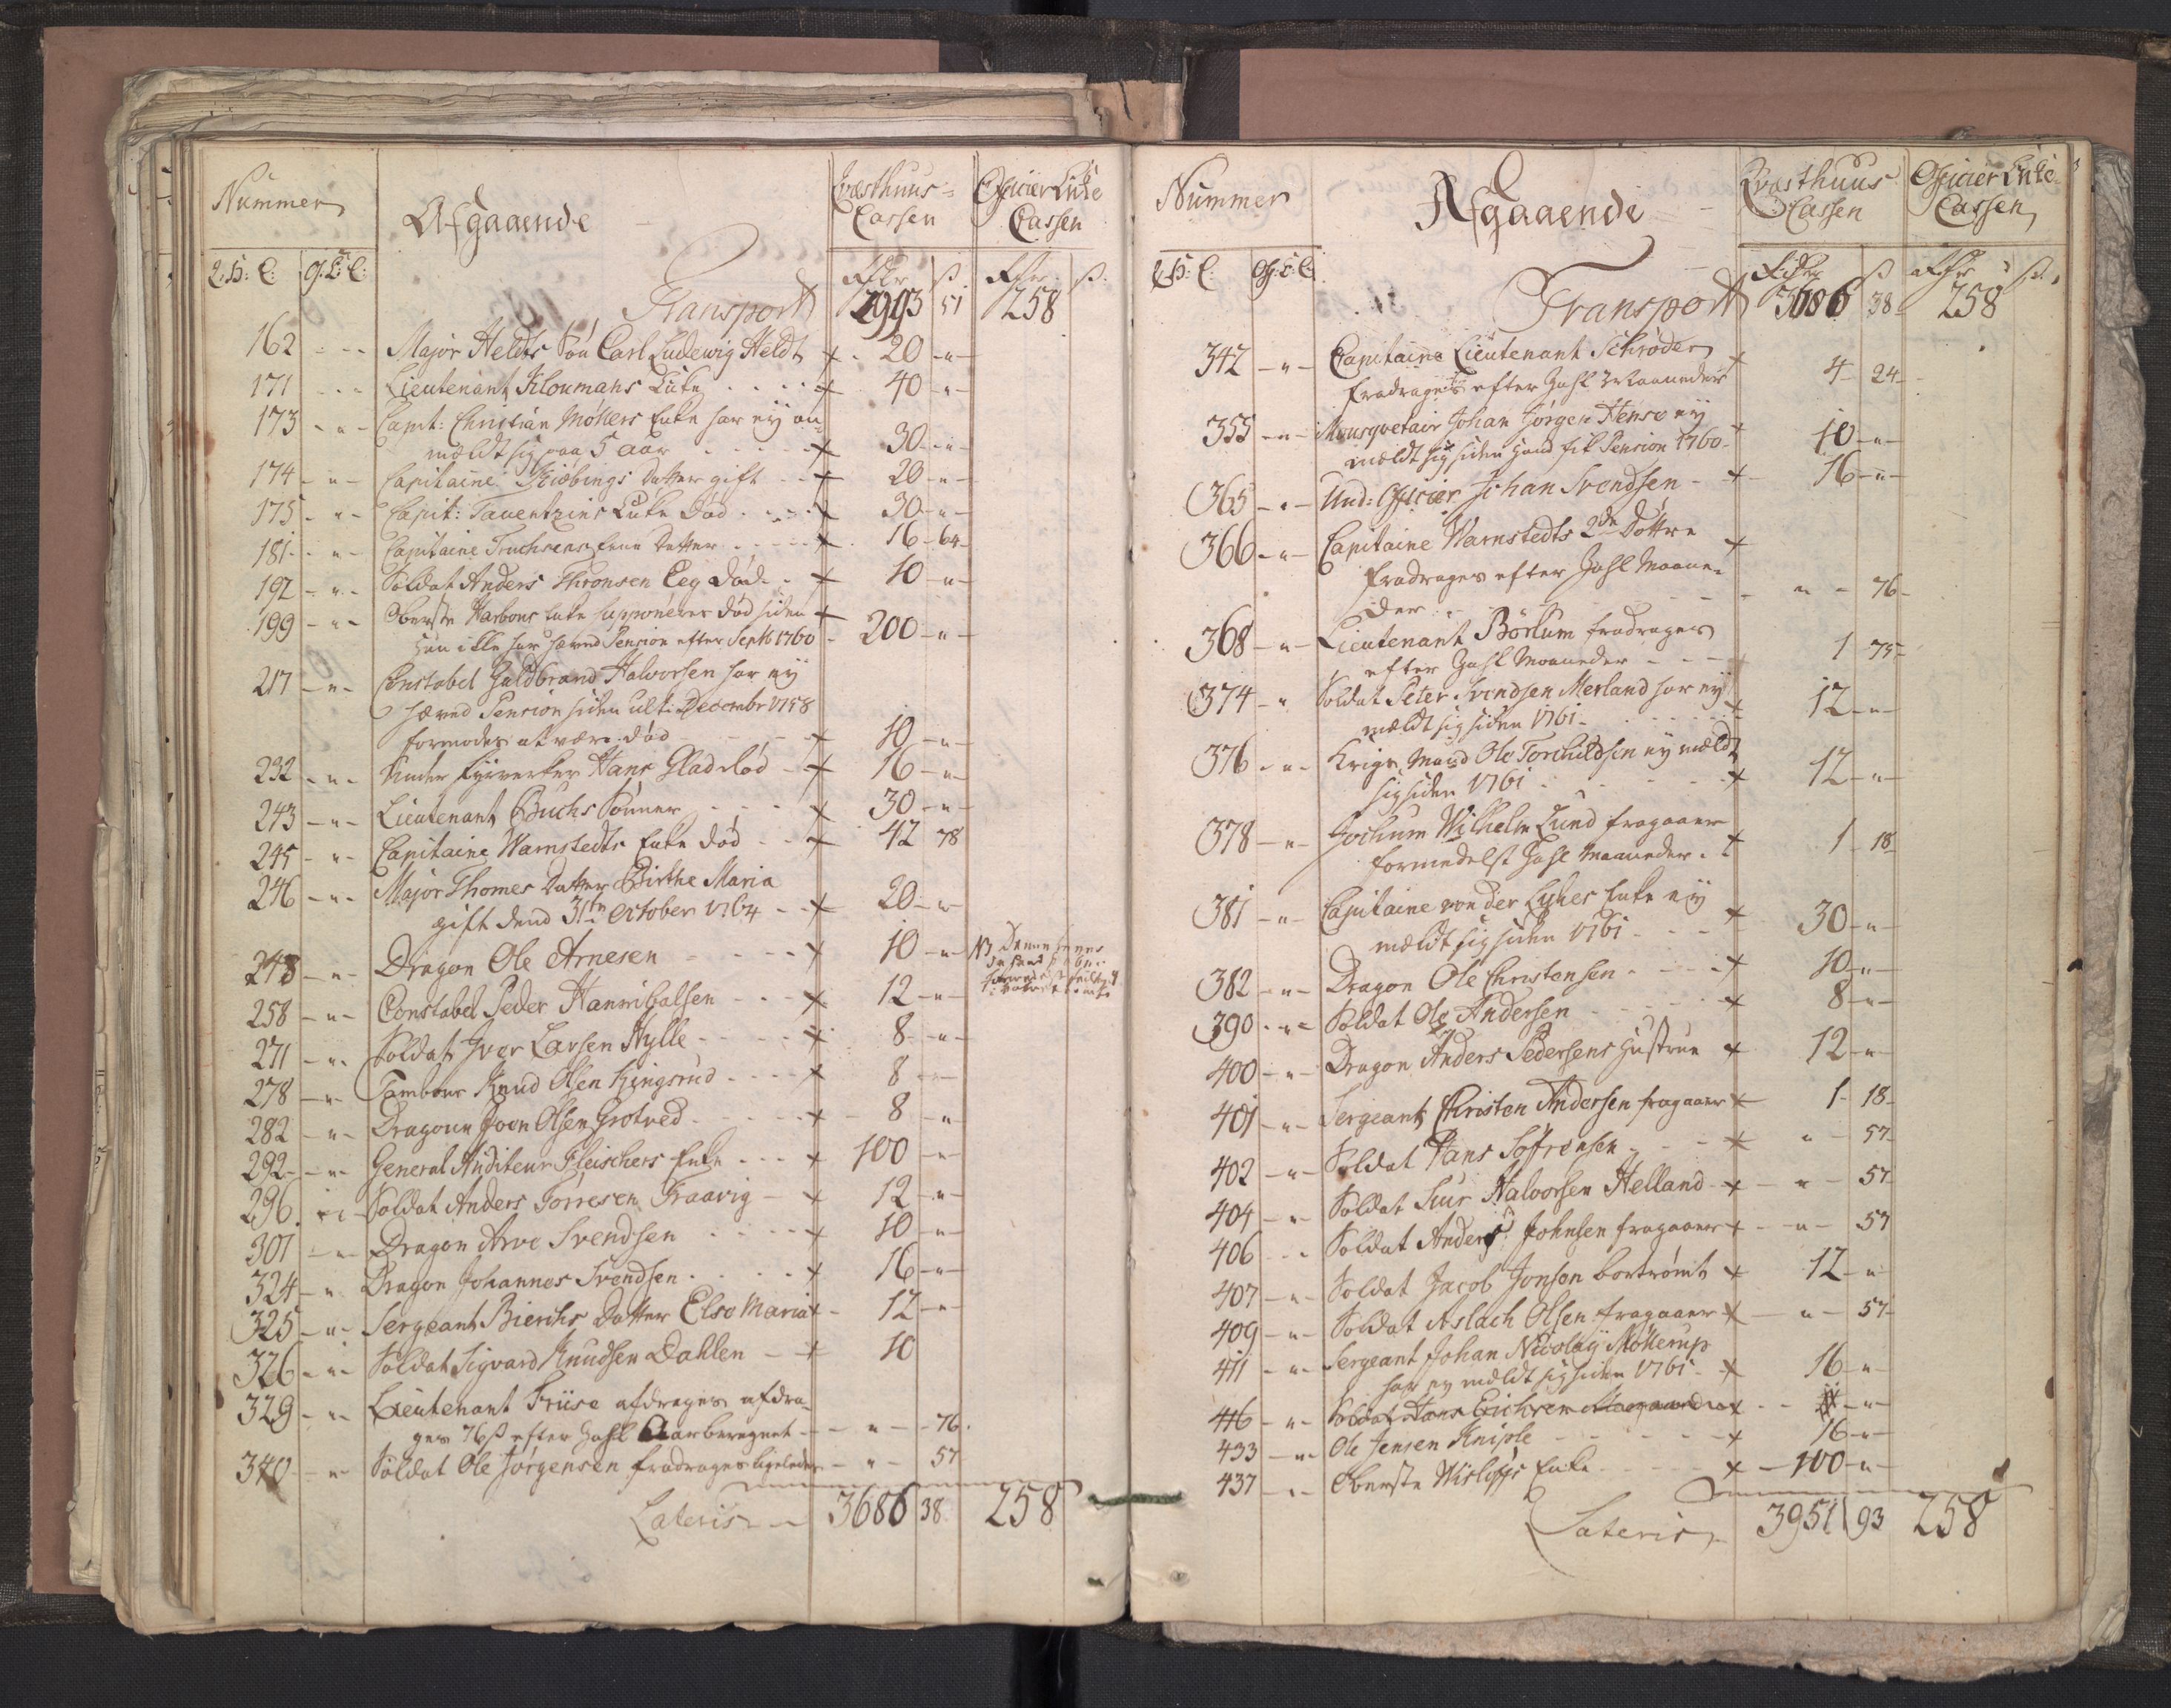 Nummer
Afgaaende
Qvæsthuus-
Cassen
Officier Enke
Cassen
Q: H: C: Of: E: C:
Rdr ß Rdr ß
Transport 2993 51 258
162 - - - Major Heldts Søn Carl Ludewig Heldt + 20 - " -
171 - - - Lieutenant Kloumans Enke + 40 - " -
173 - " - Capit: Christian Møllers Enke har ey an
mældt sig paa 5 aar + 30 - " -
174 - " - Capitaine Kiøbings Datter gift + 20 - " -
175 - " - Capit: Tauentziens Enke Død + 30 - " -
181 - " - Capitaine Truchsens eene Datter + 16 - 64
192 - " - Soldat Anders Thronsen Eeg Død + 10 - " -
199 - " - Oberste Harbous Enke supponeres død siden +
hun ikke har hæved Pension efter Septb 1760 - 200 - " -
217 - " - Constabel Guldbrand Halvorsen har ey
hæved Pension siden ult: Decembr 1758
formodes at være død + 10 - " -
232 - " - Under Fyrverker Hans Glad død + 16 - " -
243 - " - Lieutenant Buchs Sønner + 30 - " -
245 - " - Capitaine Warnstedts Enke død + 42 78
246 - " - Major Thomes Datter Birthe Maria
gift dend 31te October 1764 + 20 - " -
248 - " - Dragon Ole Arnesen + 10 - " - NB denne
258 - " - Constabel Peder Hannibalsen + 12 - " -
271 - " - Soldat Iver Larsen Hylle + 8 - " -
278 - " - Tambour Knud Olsen Ringsrud + 8 - " -
282 - " - Dragoun Joen Olsen Grotved + 8 - " -
292 - " - General Auditeur Fleischers Enke + 100 - " -
296 - " - Soldat Anders Torresen Traavig + 12 - " -
301 - " - Dragon Arve Svendsen + 10 - " -
324 - " - Dragon Johannes Svendsen + 16 - " -
325 - " - Sergeant Bierchs Datter Else Maria + 12 - " -
326 - " - Soldat Sigvard Knudsen Dahlen + 10
329 - " - Lieutenant Friise afdrages afdra-
ges 76 ß efter Hahl Aar beregnet - " - 76
340 - " - Soldat Ole Jørgensen fradrages ligeledes - " - 57
Lateris 3686 38 258
Nummer
Afgaaende
Qvæsthuus
Cassen
Officier Enke
Cassen
Q: H: C: Of: E: C:
Rdr ß Rdr ß
Transport 3686 38 258
342 - " - Capitaine Lieutenant Schrøder +
fradrages efter Hahl Maaneder 4 24
355 - " - Mousqvetair Johan Jørgen Hense ey +
mældt sig siden hand fik Pension 1760 10 - " -
365 - " - Und: Officier Johan Svendsen + 16 - " -
366 - " - Capitaine Warnstedts 2de Døttre +
fradrages efter Hahl Maane-
der - " - 76
368 - " - Lieutenant Börlum fradrages
efter Hahl Maaneder 1 75
374 - " Soldat Peter Svendsen Merland har ey
mældt sig siden 1761 + 12 - " -
376 - " - Krigs Mand Ole Torchildsen ey mældt
sig siden 1761 + 12 - " -
378 - " - Jochum Wilhelm Lund fragaaer
formedelst Hahl Maaneder + 1 18
381 - " - Capitaine von der Lyhes Enke ey
mældt sig siden 1761 + 30 - " -
382 - " - Dragon Ole Christensen + 10 - " -
390 - " - Soldat Ole Andersen + 8 - " -
400 - " - Dragon Anders Pedersens Hustrue + 12 - " -
401 - " - Sergeant Christen Andersen fragaaer + 1 - 18
402 - " - Soldat Hans Søfrensen + " - 57
404 - " - Soldat Siur Halvorsen Helland + - " - 57
406 - - Soldat Anders Johnsen fragaaer + - " - 57
407 - " - Soldat Jacob Jonsen bortrømt + 12 - "
409 - " - Soldat Aslach Olsen fragaaer + - " - 57
411 - " - Sergeant Johan Nicolay Møllerup
har ey mældt sig siden 1761 + 16 - " -
416 - " - Soldat Hans Erichsen
433 - " - Ole Jensen Kniple + 16 - " -
437 - " - Oberste Wisløffs Enke + - 100 - " -
Lateris 3951 93 258